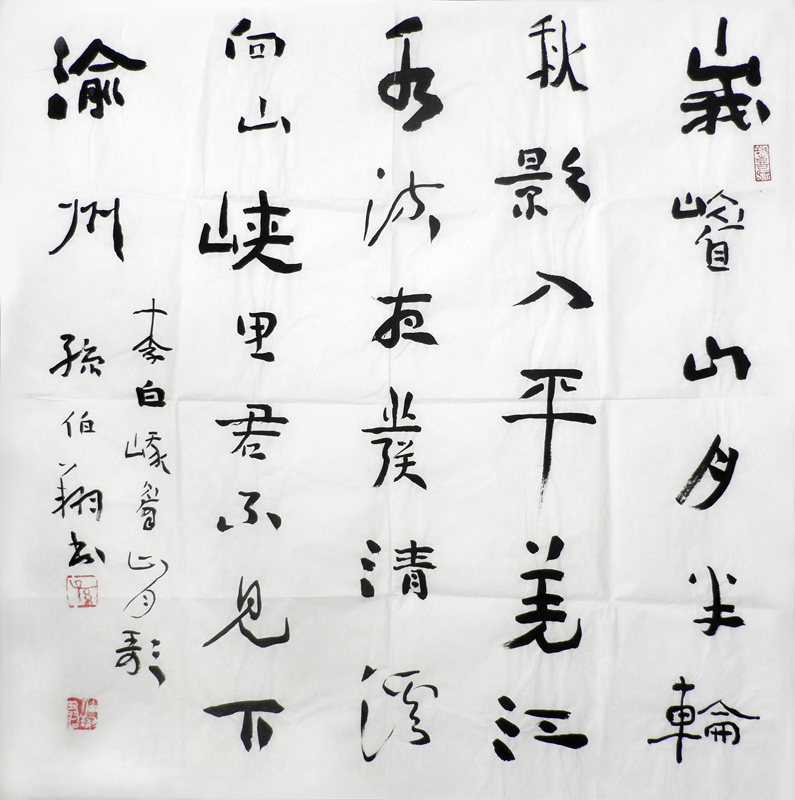 峩嵋山月半輪
秋影入平羌江
水流夜發清溪
向山峡里君不見下
渝州
李白峨眉山月歌
孫伯翔書